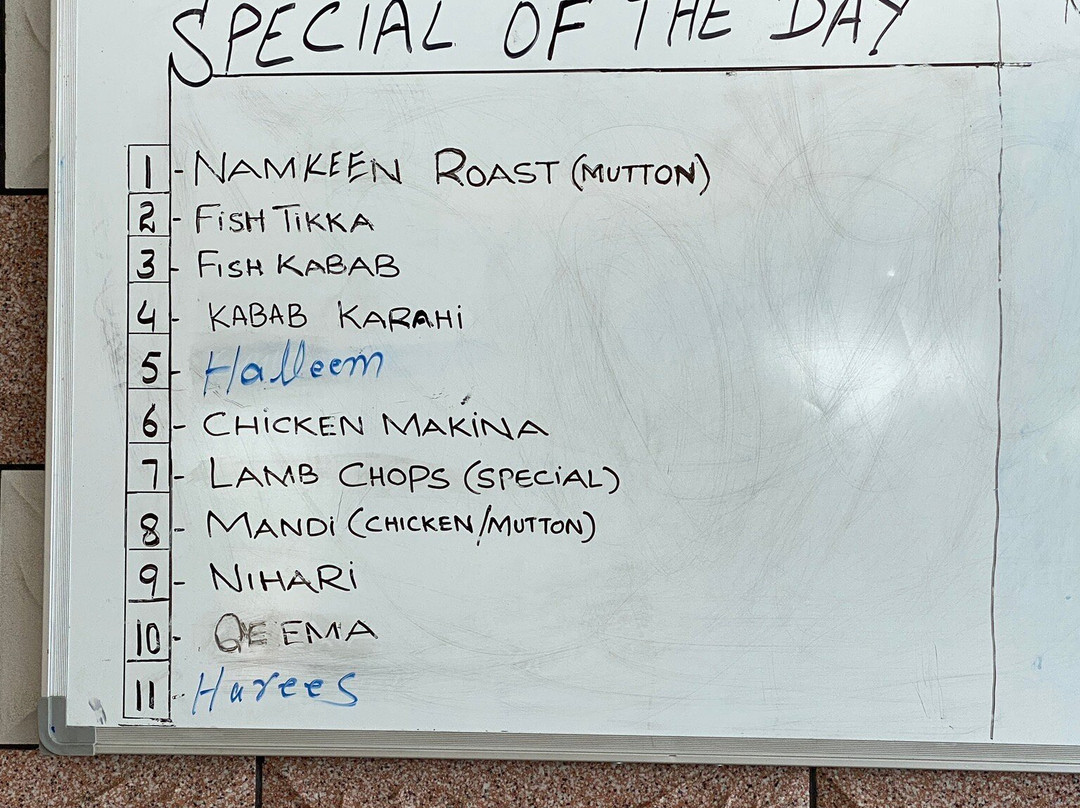 SPECIAL OF THE DAY
1 - NAMKEEN ROAST (MUTTON)
2 - FiSH TiKKA
3 - FiSH KABAB
4 - KABAB KARAHi
5 - Halleem
6 - CHiCKEN MAKiNA
7 - LAMB CHOPS (SPECiAL)
8 - MANDi (CHICKEN/MUTTON)
9 - NIHARi
10 - QEEMA
11 - Harees